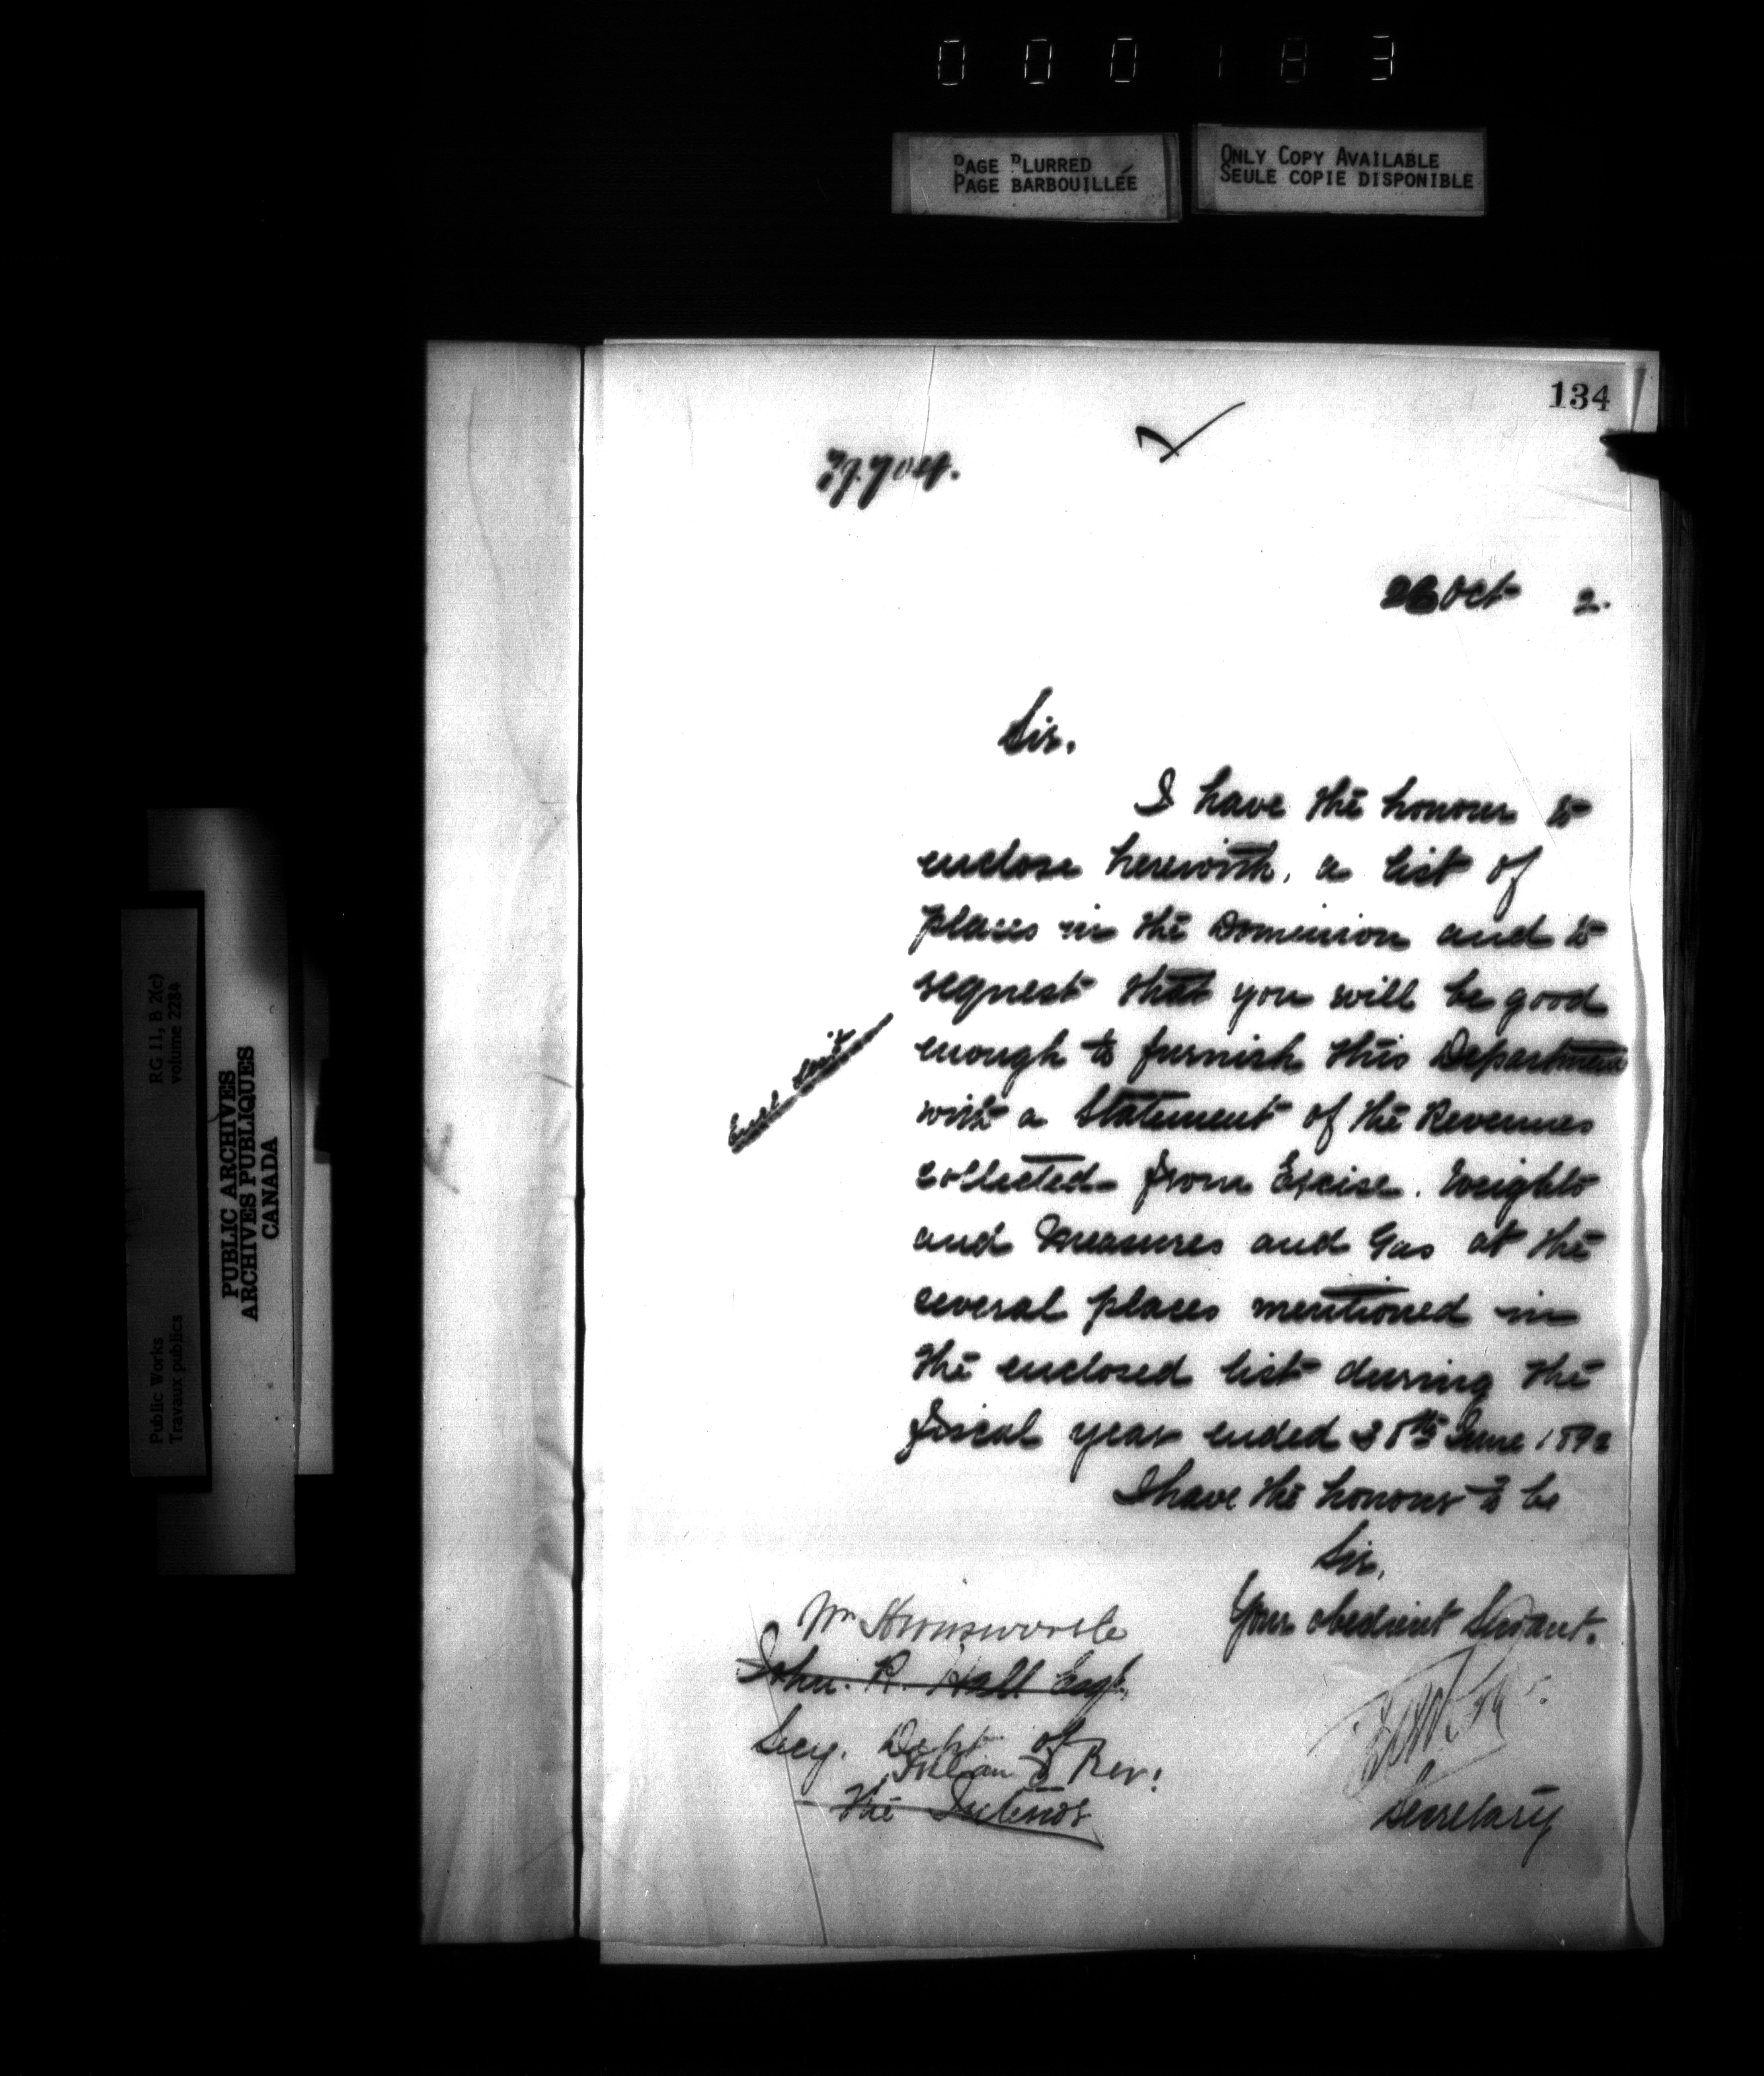 000183
PAGE BLURRED
PAGE BARBOUILLÉE
ONLY COPY AVAILABLE
SEULE COPIE DISPONIBLE
134
26 Oct 2.
Sir,
I have the honour to
enclose herewith, a list of
places in the Dominion and to
request that you will be good
enough to furnish this Department
with a Statement of the Revenues
collected from Excise. Weights
and Measures and Gas at the
several places mentioned in
the enclosed list during the
fiscal year ended 30th June 1892
I have the honour to be
Sir,
Your obedient Servant.
Wm Himsworth
John. R. Hall Esqr.
Secy. Dept of
Inland Rev.
the Interior
Secretary
RG 11, B 2(c)
volume 2284
Public Works
Travaux publics
PUBLIC ARCHIVES
ARCHIVES PUBLIQUES
CANADA